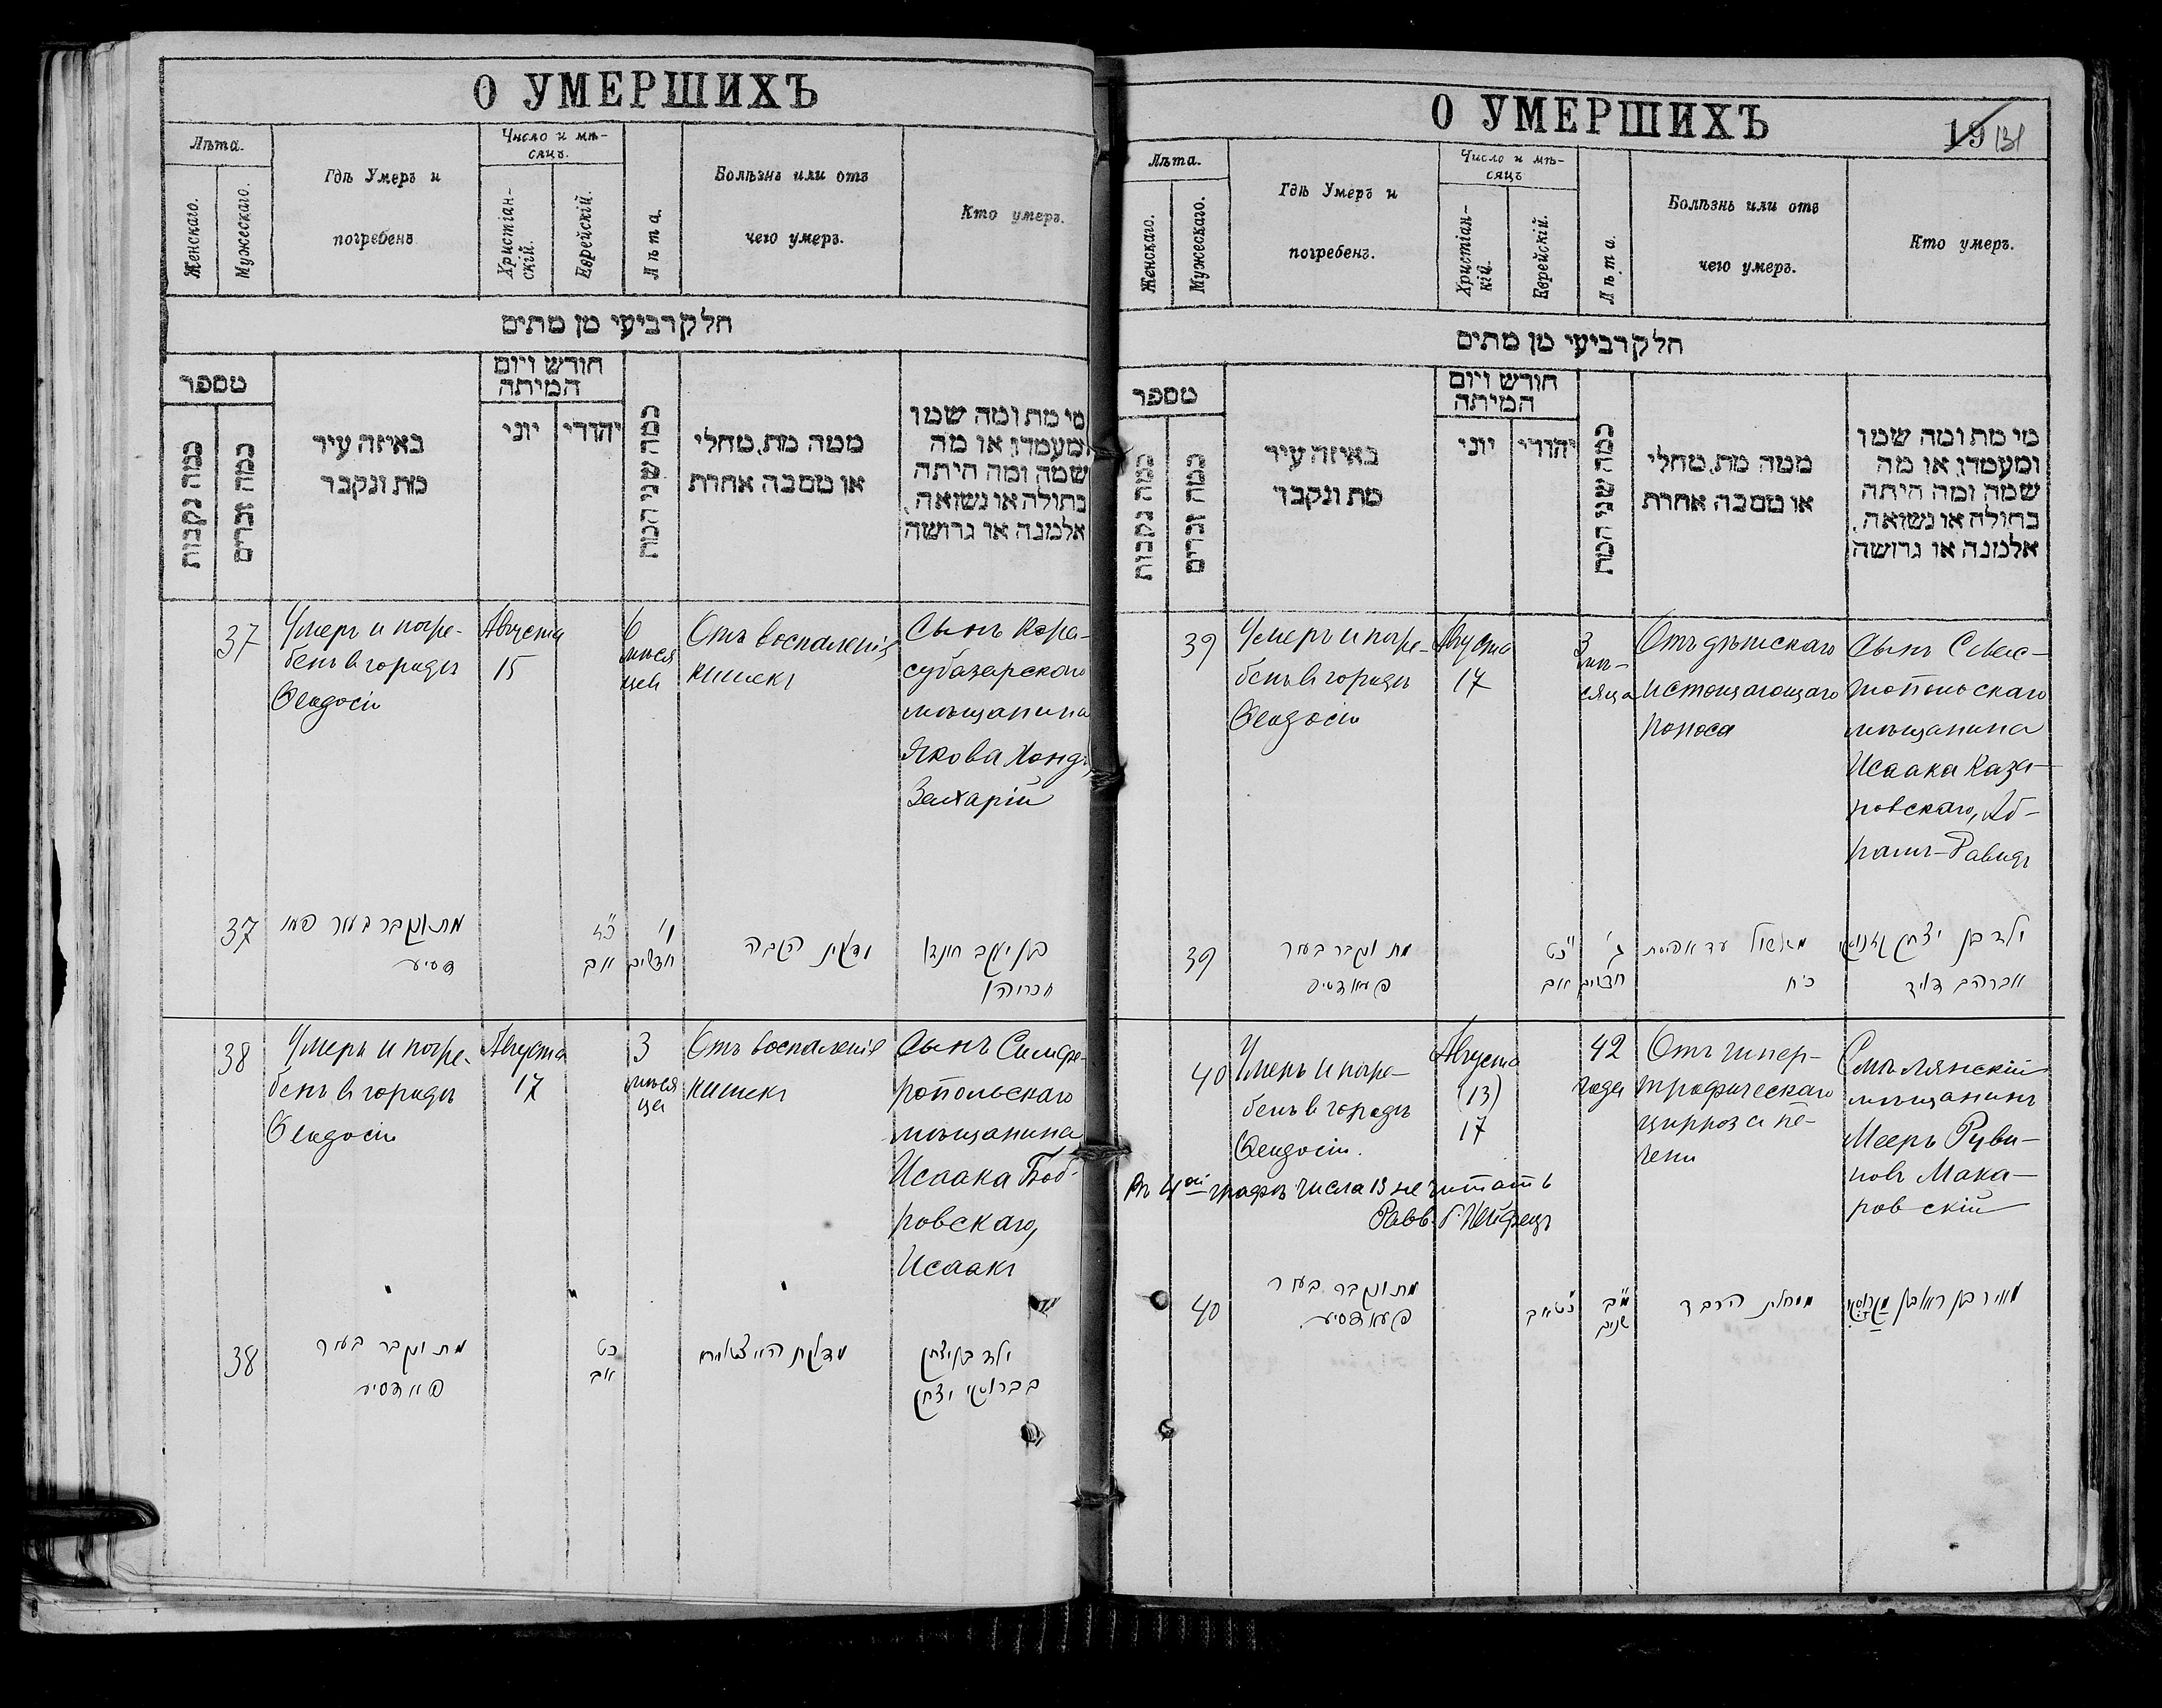 О УМЕРШИХЪ
Лѣта.
Женскаго.
Мужескаго.
Гдѣ Умеръ и
погребенъ
Число и мѣ-
сяцъ.
Христіан-
скій.
Еврейскій.
Лѣта.
Болѣзнь или отъ
чего умеръ.
Кто умеръ.
חלק רביעי מן מתים
מספר
כמה נקבות
כמה זכרים
באיזה עיר
מת ונקבר
חודש ויום
המיתה
יוני
יהודי
כמה שני המת
ממה מת, מחלי
או מסבה אחרת
מי מת ומה שמו
ומעמדו, או מה
שמה ומה היתה
בתולה או נשואה,
אלמנה או גרושה
37
Умеръ и погре-
бенъ въ городѣ
Ѳеодосіи
Августа
15
6
мѣся
цев
Отъ воспаленія
кишекъ
Сынъ Кара-
субазарскаго
мѣщанина
Якова Хондо
Захарій
37
מת ונקבר בעיר
אב
ו'
חדשים
בן יעקב
38
Умеръ и погре-
бенъ въ городѣ
Ѳеодосіи
Августа
17
3
мѣся
ца
Отъ воспаленія
кишекъ
Сынъ Симфе-
ропольскаго
мѣщанина
Исаака Боб-
ровскаго,
Исаакъ
38
מת ונקבר בעיר
כט
אב
ילד בן יצחק
יצחק
О УМЕРШИХЪ
19 131
Лѣта.
Женскаго.
Мужескаго.
Гдѣ Умеръ и
погребенъ.
Число и мѣ-
сяцъ
Христіан-
кій.
Еврейскій.
Лѣта.
Болѣзнь или отъ
чего умеръ.
Кто умеръ.
חלק רביעי מן מתים
מספר
כמה נקבות
כמה זכרים
באיזה עיר
מת ונקבר
חודש ויום
המיתה
יוני
יהודי
כמה שני המת
ממה מת, מחלי
או מסבה אחרת
מי מת ומה שמו
ומעמדו, או מה
שמה ומה היתה
בתולה או נשואה,
אלמנה או גרושה
39
Умеръ и погре-
бенъ въ городѣ
Ѳеодосіи
Августа
17
3
мѣ-
сяца
Отъ дѣтскаго
истощающаго
поноса
Сынъ Севас-
топольскаго
мѣщанина
Исаака Каза-
ровскаго, Аб-
рамъ-Давидъ
39
מת ונקבר בעיר
כ"ט
אב
ג'
חדשים
ילד בן יצחק
אברהם דוד
40
Умеръ и погре-
бенъ въ городѣ
Ѳеодосіи.
Августа
(13)
17
42
года
Отъ гипер-
трофическаго
цирроза пе-
чени
Смѣлянскій
мѣщанинъ
Мееръ Руви-
новъ Мака-
ровскій
Въ 4ой графѣ числа 13 не читать
Равв.
40
מת ונקבר בעיר
כט אב
מ"ב
שנים
מחלת הכבד
מאיר בן ראובן